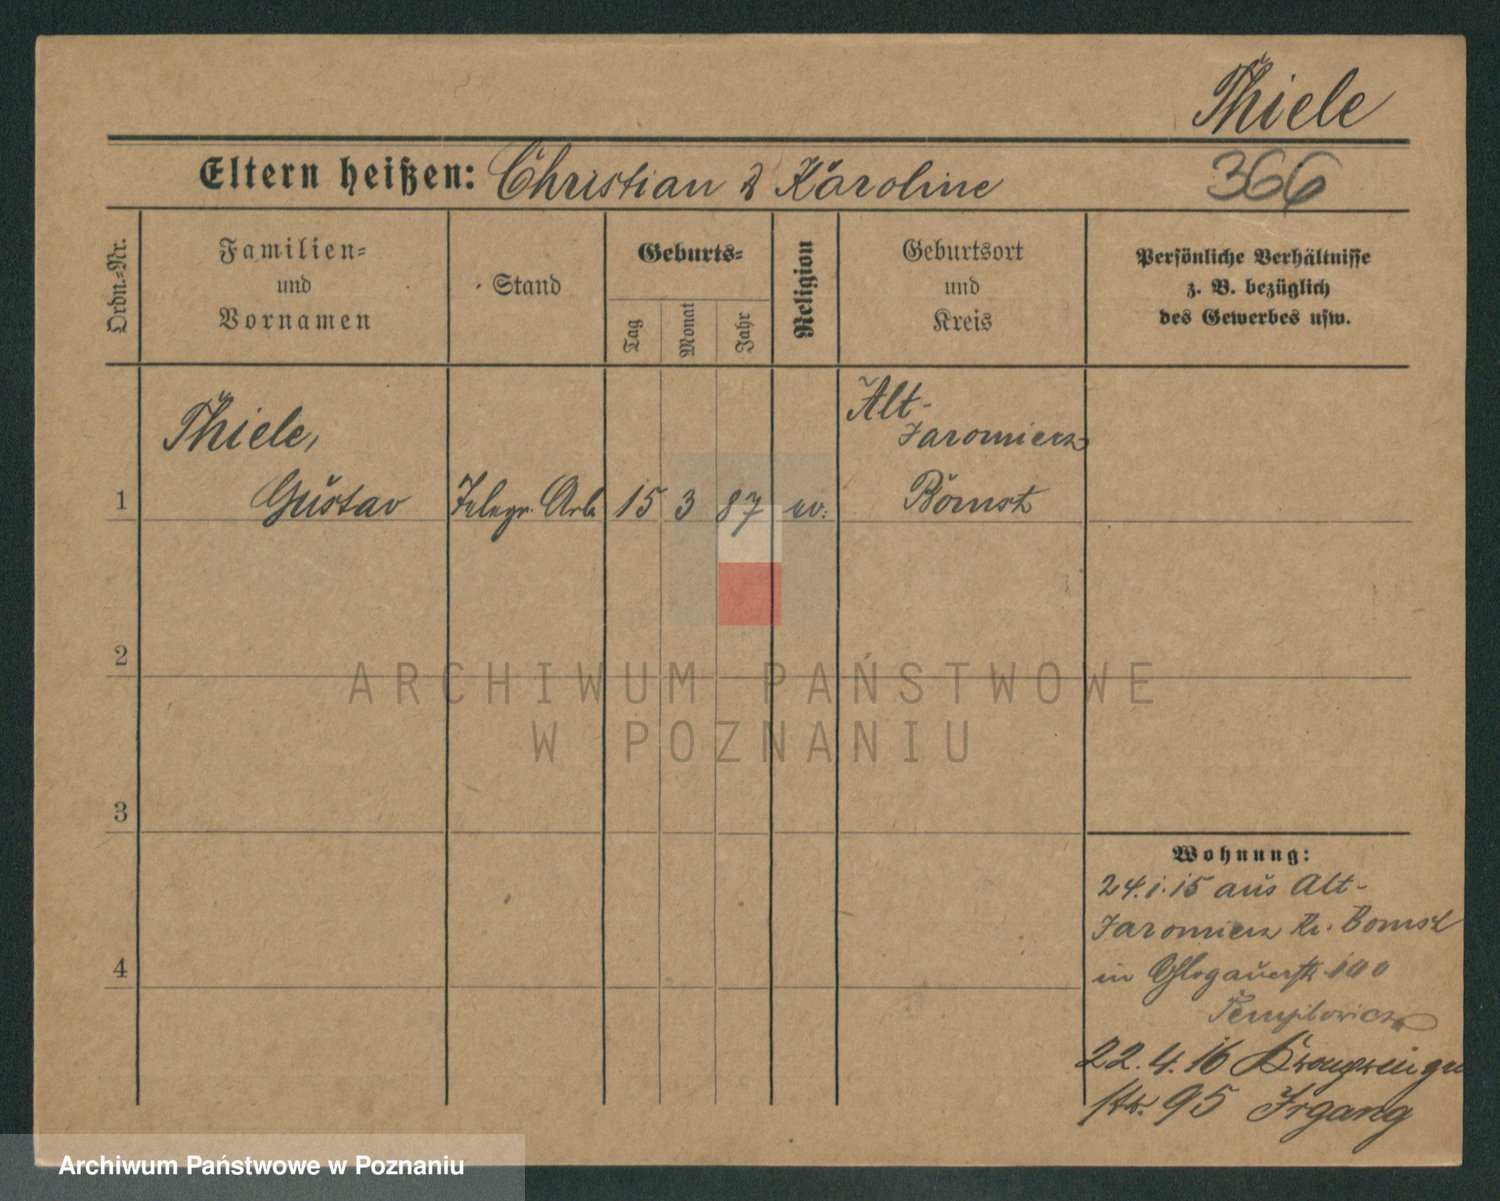 Thiele
Eltern heißen: Christian & Karoline
366
Ordn.-Nr.
Familien-
und
Vornamen
Stand
Geburts-
Tag
Monat
Jahr
Religion
Geburtsort
und
Kreis
Persönliche Verhältnisse
z. B. bezüglich
des Gewerbes usw.
1
Thiele,
Gustav
Telegr. Arb.
15
3
87
ev.
Alt-
Jaromierz
Bomst
2
3
4
Wohnung:
24.1.15 aus Alt-
Jaromierz Kr. Bomst
in Glogauerstr. 100
22.4.16
str. 95 Irgang
ARCHIWUM PAŃSTWOWE
W POZNANIU
Archiwum Państwowe w Poznaniu